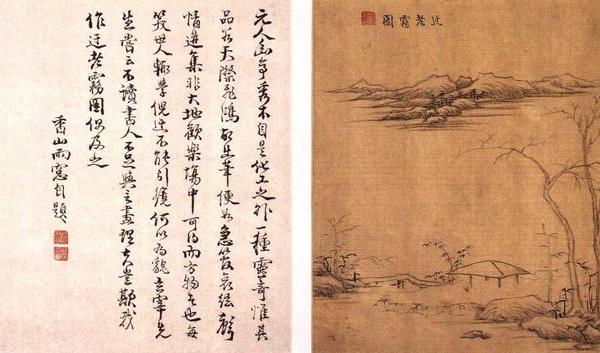 元人幽亭秀木自是化工之外一種靈奇惟其
品若天際飛鴻故出筆便如急管哀絃聲
情迸集非大地歡樂場中可得而方物者也每
笑世人輒學倪迂不能引 何以為 玄宰先
生嘗云不讀書人不足與言畫理夫豈欺我
作迂老霧圖偶及之
香山雨窓自題
迂老霧圖